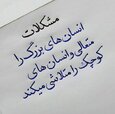 مشکلات
انسان‌های بزرگ را
متعالی و انسان های
کوچک را متلاشی میکند